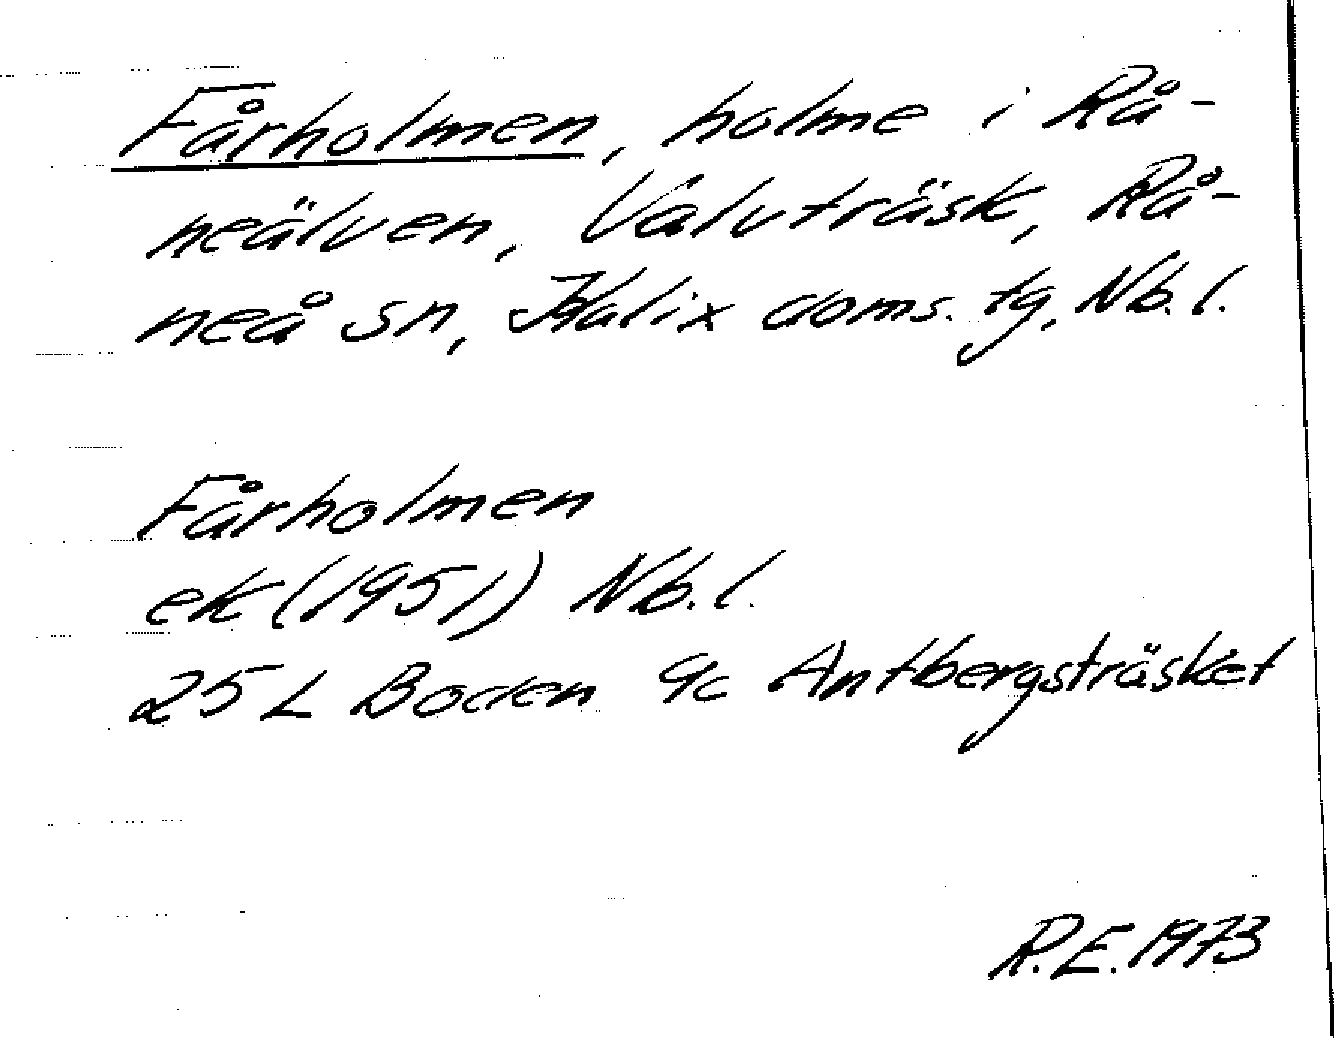 Fårholmen, holme i Rå-
neälven, Valvträsk, Rå-
neå sn, Kalix doms. tg, Nb. l.
Fårholmen
ek (1951) Nb. l.
25 L Boden 9c Antbergsträsket
R.E. 1973